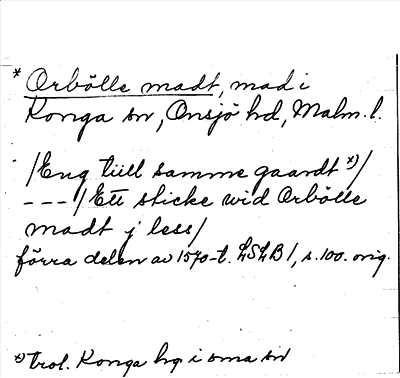 * Orbölle madt, mad i
Konga sn, Onsjö hd, Malm. l.
/Eng tiill samme gaardt x)/
---/Ett sticke wid Orbölle
madt j less/
förra delen av 1570-t. LSLB 1, s. 100. orig.
x) trol. Konga hg i sma sn